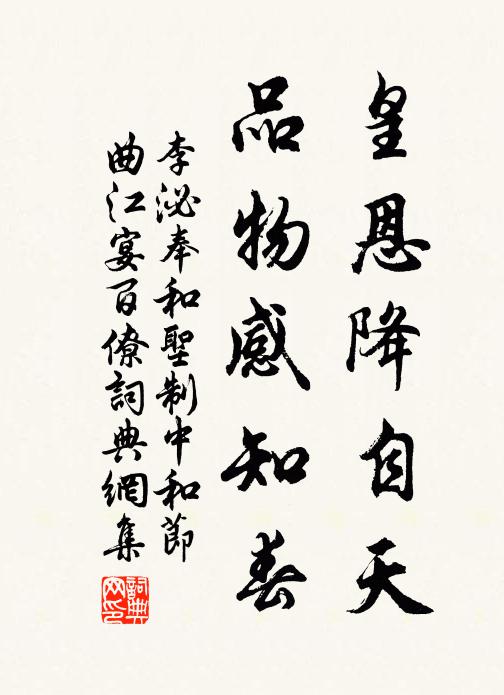 皇恩降自天
品物感知春
李泌奉和聖制中和節
曲江宴百僚詞典網集
詞典
網印